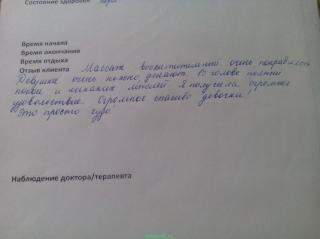 Состояние здоровья
Время начала
Время окончания
Время отдыха
Отзыв клиента Массаж восхитительный очень понравилось
Девушки очень нежно делают. В голове полный
покой и никаких мыслей я получила огромное
удовольствие. Огромное спасибо девочки!
Это просто чудо.
Наблюдение доктора/терапевта